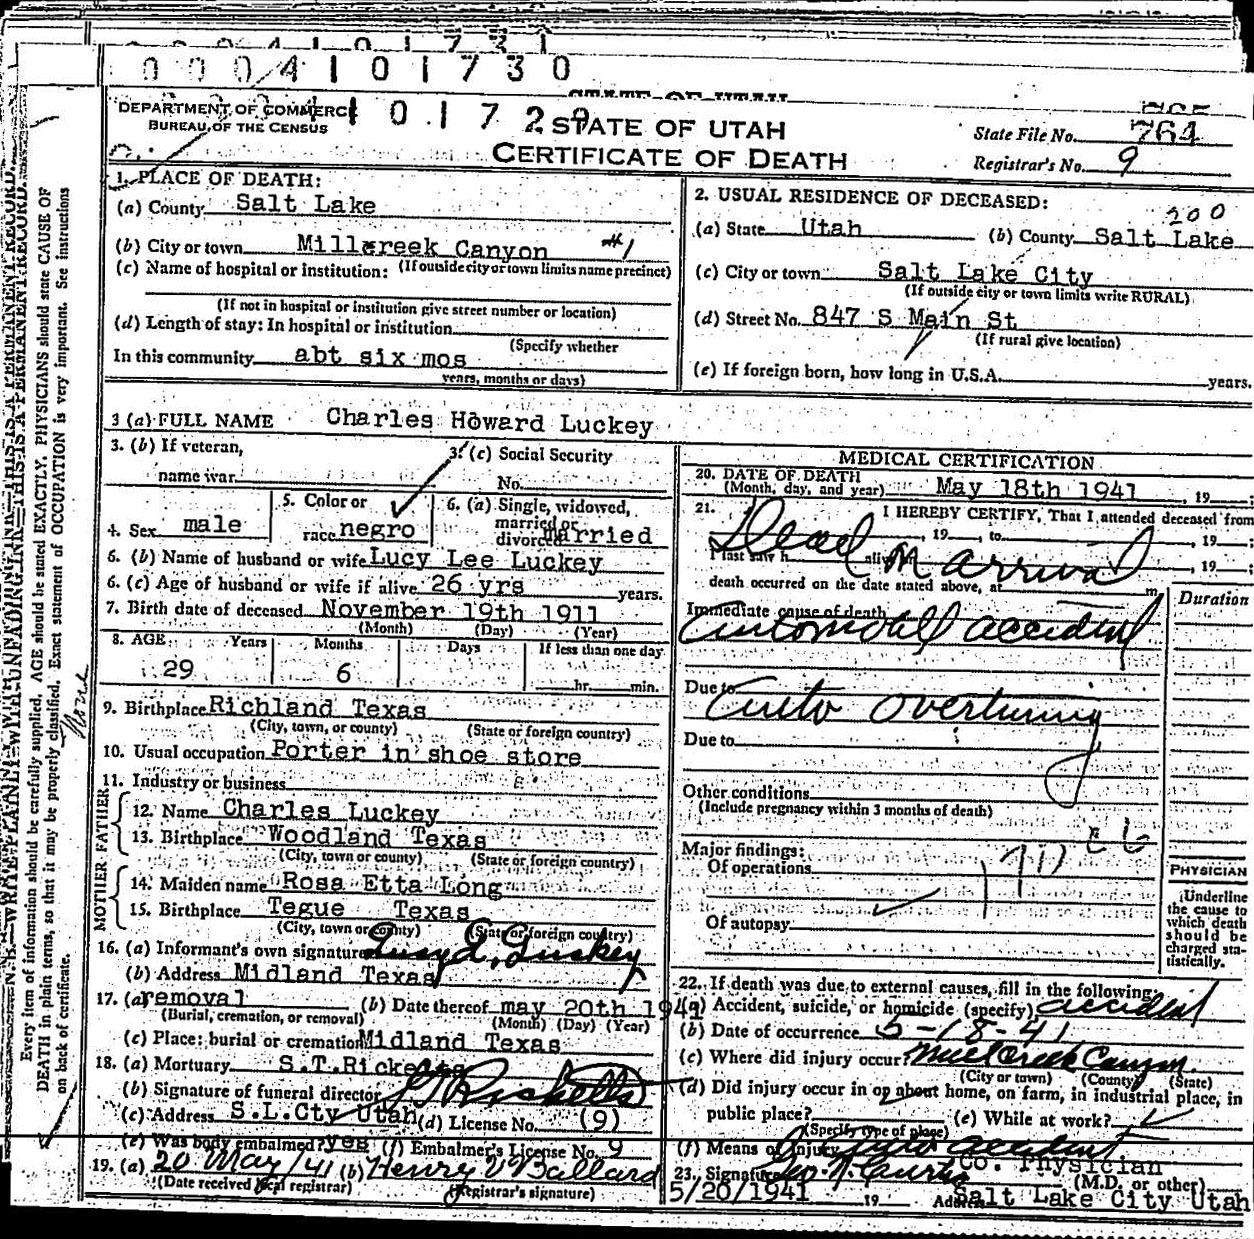 0 0 0 4 1 0 1 7 3 0
STATE OF UTAH
DEPARTMENT OF COMMERCE
BUREAU OF THE CENSUS
1 0 1 7 2 9
STATE OF UTAH
CERTIFICATE OF DEATH
State File No. 764
Registrar's No. 9
1. PLACE OF DEATH:
(a) County Salt Lake
(b) City or town Millcreek Canyon #1
(If outside city or town limits name precinct)
(c) Name of hospital or institution:
(If not in hospital or institution give street number or location)
(d) Length of stay: In hospital or institution
(Specify whether
In this community abt six mos
years, months or days)
2. USUAL RESIDENCE OF DECEASED:
200
(a) State Utah (b) County Salt Lake
(c) City or town Salt Lake City
(If outside city or town limits write RURAL)
(d) Street No. 847 S Main St
(If rural give location)
(e) If foreign born, how long in U.S.A. years.
3 (a) FULL NAME Charles Howard Luckey
3. (b) If veteran,
name war
3. (c) Social Security
No.
4. Sex male
5. Color or
race negro
6. (a) Single, widowed,
married or
divorced married
6. (b) Name of husband or wife Lucy Lee Luckey
6. (c) Age of husband or wife if alive 26 yrs years.
7. Birth date of deceased November 19th 1911
(Month) (Day) (Year)
8. AGE Years Months Days If less than one day
29 6 hr. min.
9. Birthplace Richland Texas
(City, town, or county) (State or foreign country)
10. Usual occupation Porter in shoe store
11. Industry or business
FATHER
12. Name Charles Luckey
13. Birthplace Woodland Texas
(City, town or county) (State or foreign country)
MOTHER
14. Maiden name Rosa Etta Long
15. Birthplace Tegue Texas
(City, town or county) (State or foreign country)
16. (a) Informant's own signature Luckey
(b) Address Midland Texas
17. (a) removal (b) Date thereof may 20th 1941
(Burial, cremation, or removal) (Month) (Day) (Year)
(c) Place: burial or cremation Midland Texas
18. (a) Mortuary S.T.Ricketts
(b) Signature of funeral director Ricketts
(c) Address S.L.Cty Utah (d) License No. (9)
(e) Was body embalmed? yes (f) Embalmer's License No. 9
19. (a) 20 May/41 (b) Henry V Ballard
(Date received local registrar) (Registrar's signature)
MEDICAL CERTIFICATION
20. DATE OF DEATH
(Month, day, and year) May 18th 1941, 19 ;
21. I HEREBY CERTIFY, That I attended deceased from
Dead on arrival
, 19 , to , 19 ;
I last saw h alive , 19 ;
death occurred on the date stated above, at m.
Immediate cause of death
Duration
Automobile accident
Due to Auto overturning
Due to
Other conditions
(Include pregnancy within 3 months of death)
Major findings:
Of operations
Of autopsy
PHYSICIAN
Underline
the cause to
which death
should be
charged sta-
tistically.
22. If death was due to external causes, fill in the following:
(a) Accident, suicide, or homicide (specify) accident
(b) Date of occurrence 5-18-41
(c) Where did injury occur? Mill Creek Canyon
(City or town) (County) (State)
(d) Did injury occur in or about home, on farm, in industrial place, in
public place? (e) While at work?
(Specify type of place)
(f) Means of injury auto accident
23. Signature Co. Physician
(M.D. or other)
5/20/1941 19 Address Salt Lake City Utah
N. B.—WRITE PLAINLY WITH UNFADING INK—THIS IS A PERMANENT RECORD.
Every item of information should be carefully supplied. AGE should be stated EXACTLY. PHYSICIANS should state CAUSE OF
DEATH in plain terms, so that it may be properly classified. Exact statement of OCCUPATION is very important. See instructions
on back of certificate.